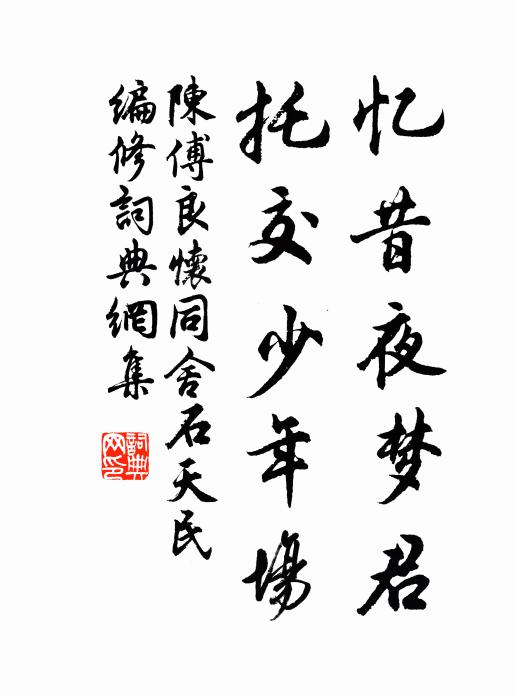 忆昔夜梦君
托交少年場
陳傅良懷同舍石天民
編修詞典網集
詞典網印